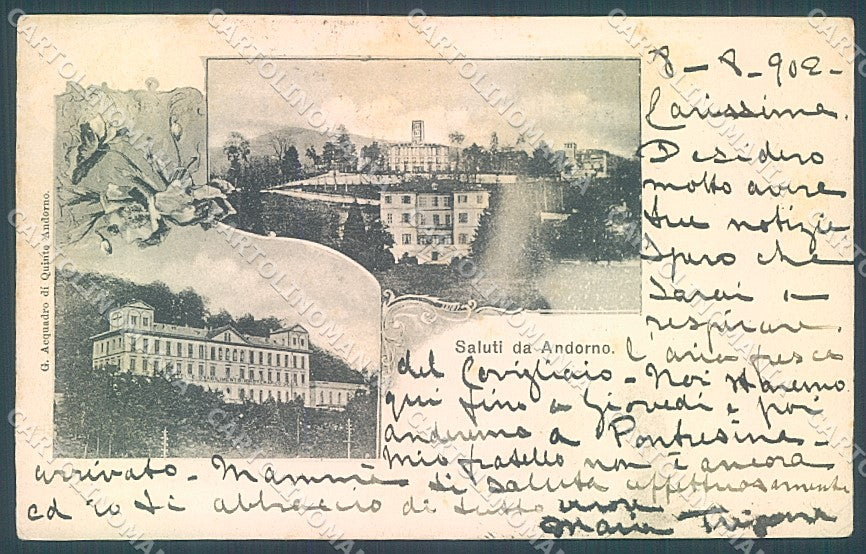 8-8-902-
Carissima.
Desidero
molto avere
tue notizie
Spero che
sarai a
respirare
l'aria fresca
del Covigliaio - Noi staremo
qui fino a Giovedì e poi
anderemo a Pontresina -
Mio fratello non è ancora
arrivato - Mammà ti saluta affettuosamente
ed io ti abbraccio di tutto cuore
Maria
Saluti da Andorno.
G. Acquadro di Quinto Andorno.
CARTOLINOMANIA